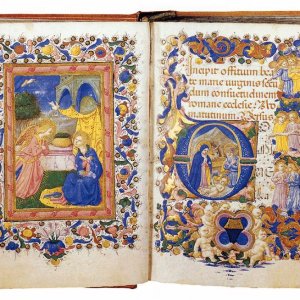 Incipit offitium bea
te marie virginis secu
dum consuetudinem
romane ecclesie. Ad
matutinum. Versus
D